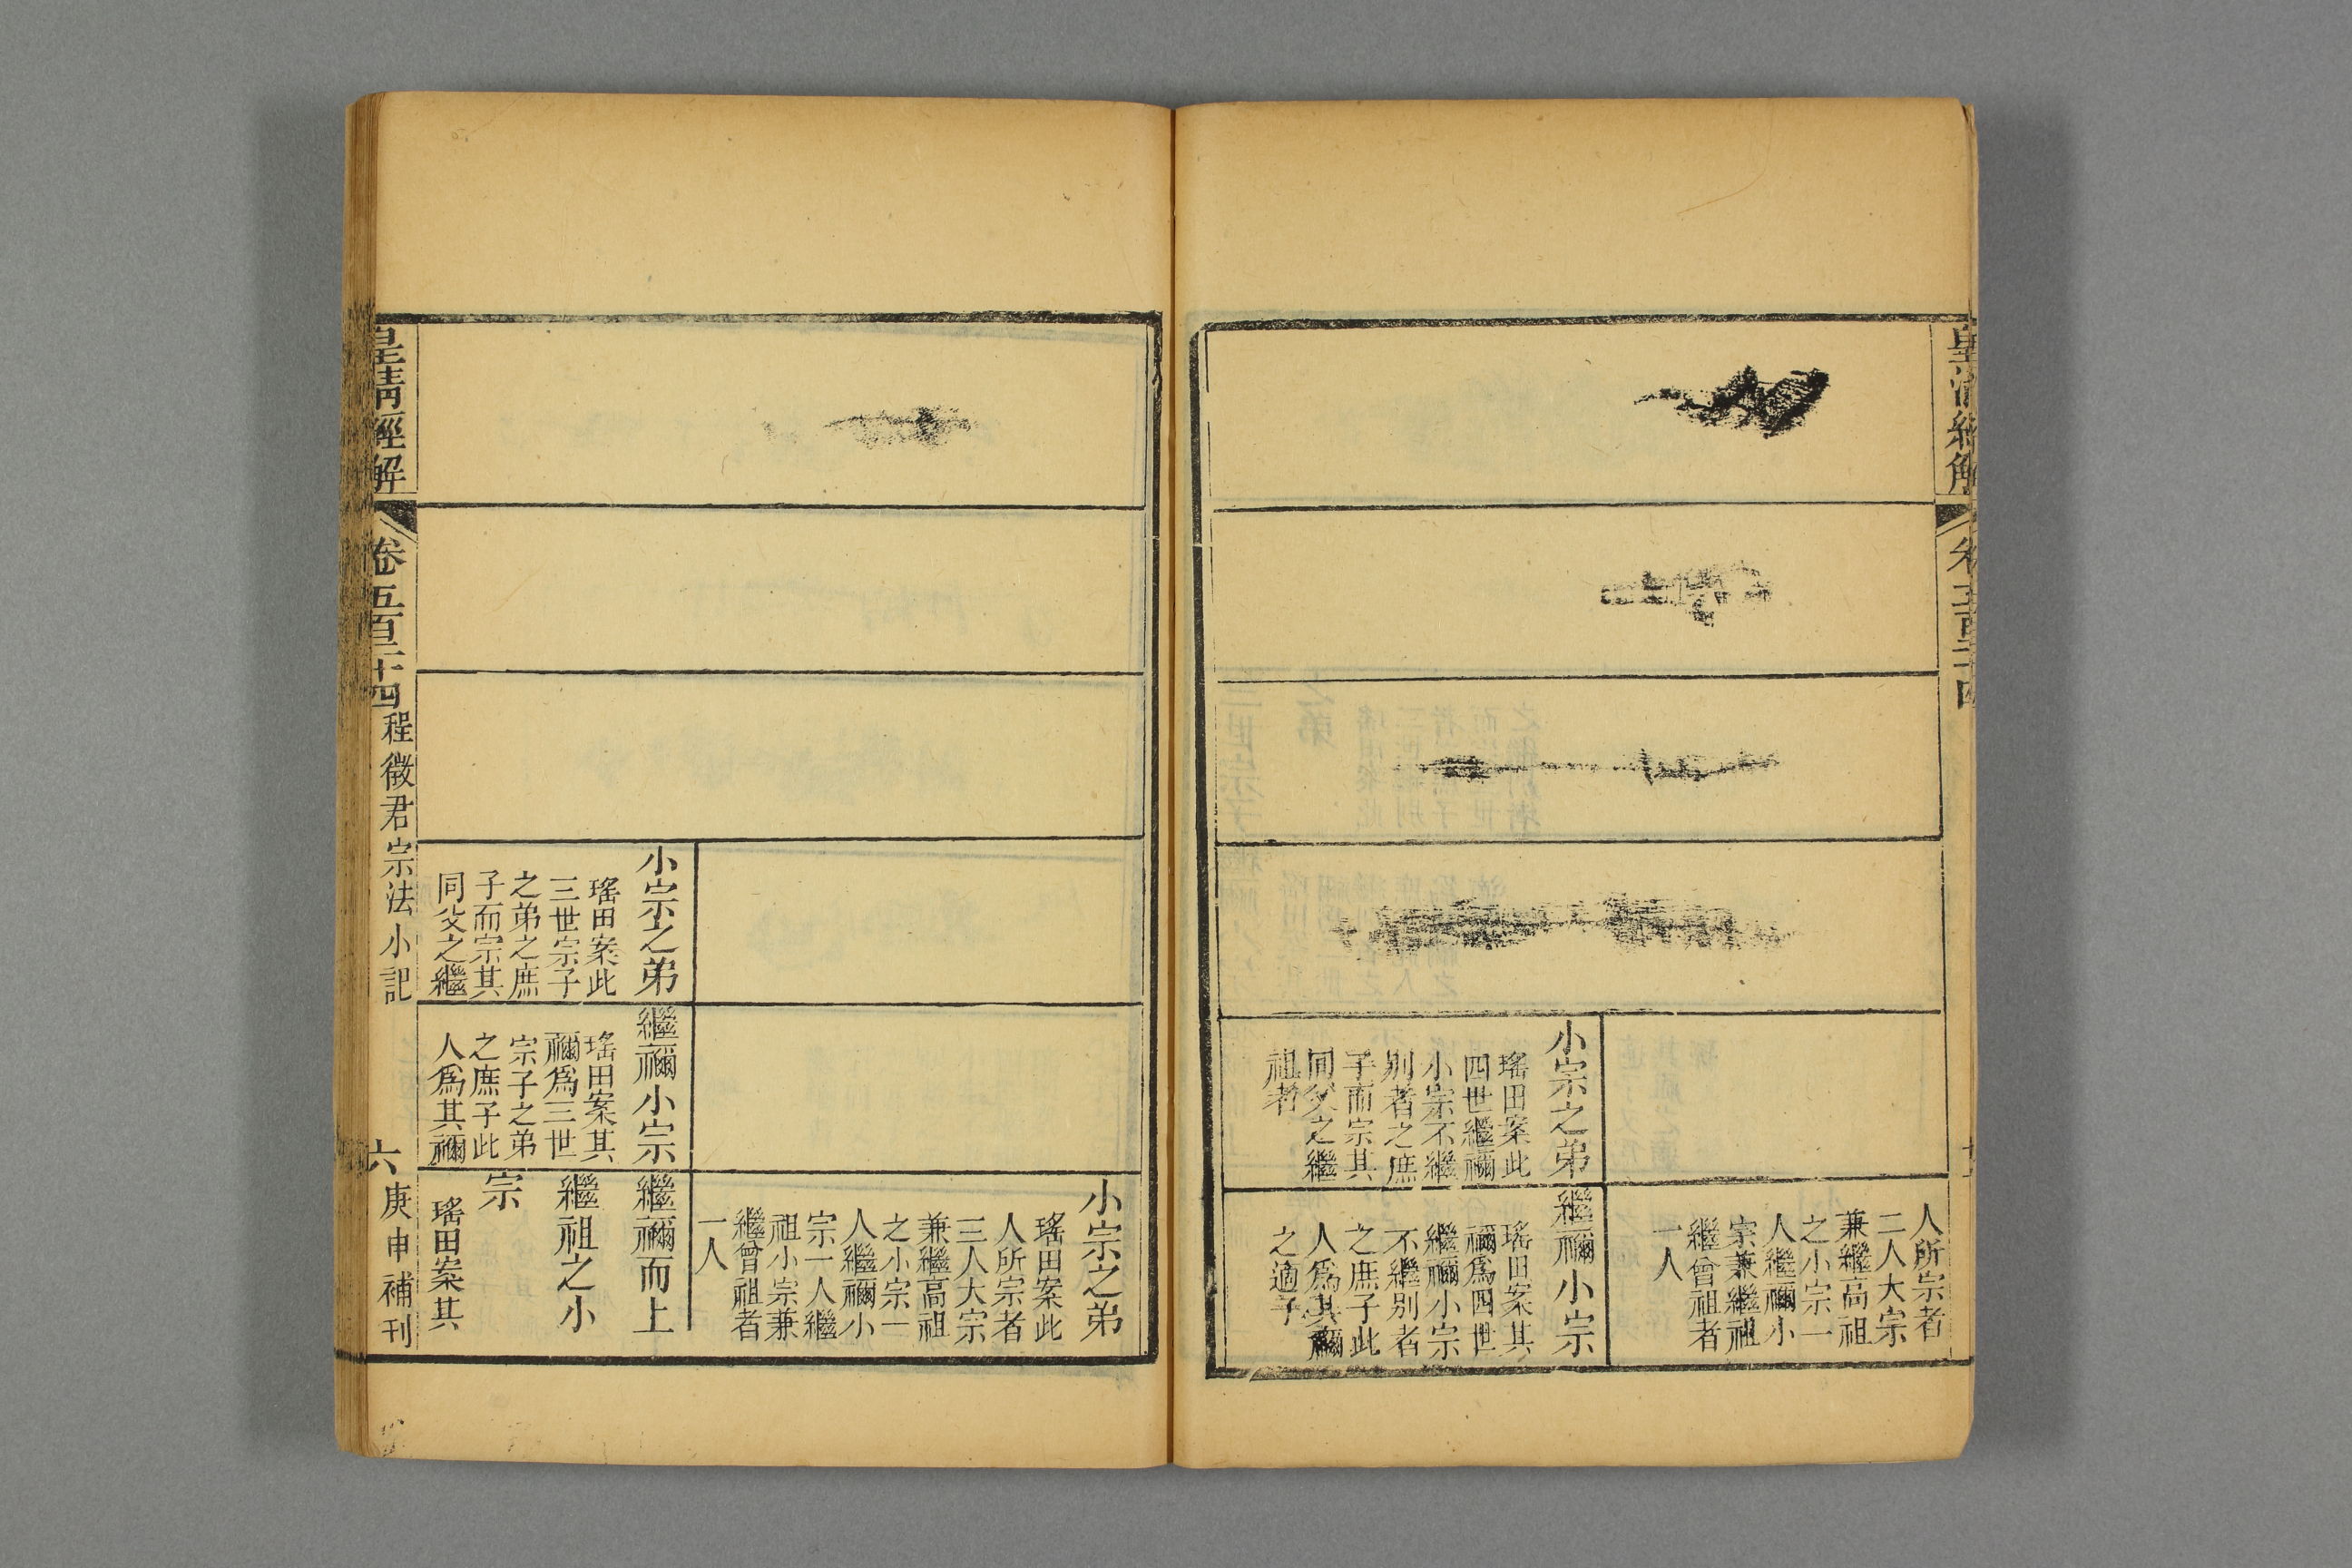 人所宗者
二人大宗
兼繼高祖
之小宗一
人繼禰小
宗兼繼祖
繼曾祖者
一人
小宗之弟
瑤田案此
四世繼禰
小宗不繼
別者之庶
子而宗其
同父之繼
祖者
繼禰小宗
瑤田案其
禰爲四世
繼禰小宗
不繼別者
之庶子此
人爲其禰
之適子
小宗之弟
瑤田案此
人所宗者
三人大宗
兼繼高祖
之小宗一
人繼禰小
宗一人繼
祖小宗兼
繼曾祖者
一人
小宗之弟
瑤田案此
三世宗子
之弟之庶
子而宗其
同父之繼
繼禰小宗
瑤田案其
禰爲三世
宗子之弟
之庶子此
人爲其禰
繼禰而上
繼祖之小
宗
瑤田案其
皇清經解
卷五百二十四
程徵君宗法小記
六
庚申補刊